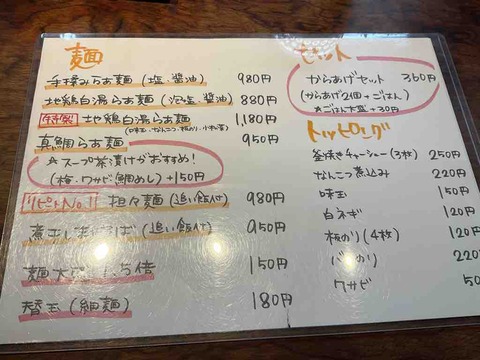 麺
手揉みらぁ麺(塩、醤油) 980円
地鶏白湯らぁ麺(泡塩、醤油) 880円
特製 地鶏白湯らぁ麺 1,180円
(味玉・なんこつ・板のり・小ねぎ)
真鯛らぁ麺 950円
☆スープ茶漬けがおすすめ!
(梅・ワサビ鯛めし)+150円
リピートNo.1 担々麺(追い飯付) 980円
煮干しまぜそば(追い飯付) 950円
麺大盛 1.5倍 150円
替玉(細麺) 180円
セット
からあげセット 360円
(からあげ2個+ごはん)
☆ごはん大盛+30円
トッピング
釜焼きチャーシュー(3枚) 250円
なんこつ煮込み 220円
味玉 150円
白ネギ 120円
板のり(4枚) 120円
220
ワサビ 50